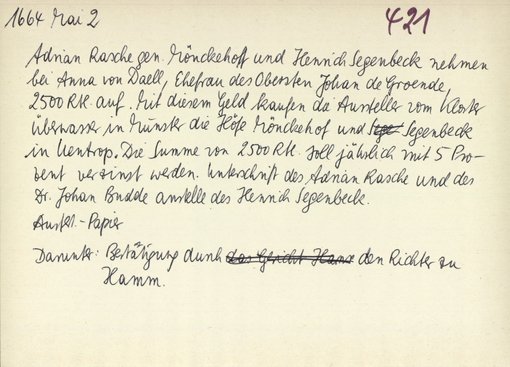 1664 Mai 2 421
Adrian Rasche gen. Mönckehoff und Henrich Segenbeck nehmen
bei Anna von Daell, Ehefrau des Obersten Johan de Groende,
2500 Rtl. auf. Mit diesem Geld kaufen die Aussteller vom Kloster
Überwasser in Münster die Höfe Mönckehof und Segenbeck
in Uentrop. Die Summe von 2500 Rtl. soll jährlich mit 5 Pro-
zent verzinst werden. Unterschrift des Adrian Rasche und des
Dr. Johan Budde anstelle des Henrich Segenbeck.
Ausf. - Papier
Darunter: Bestätigung durch das Gericht Hamm den Richter zu
Hamm.